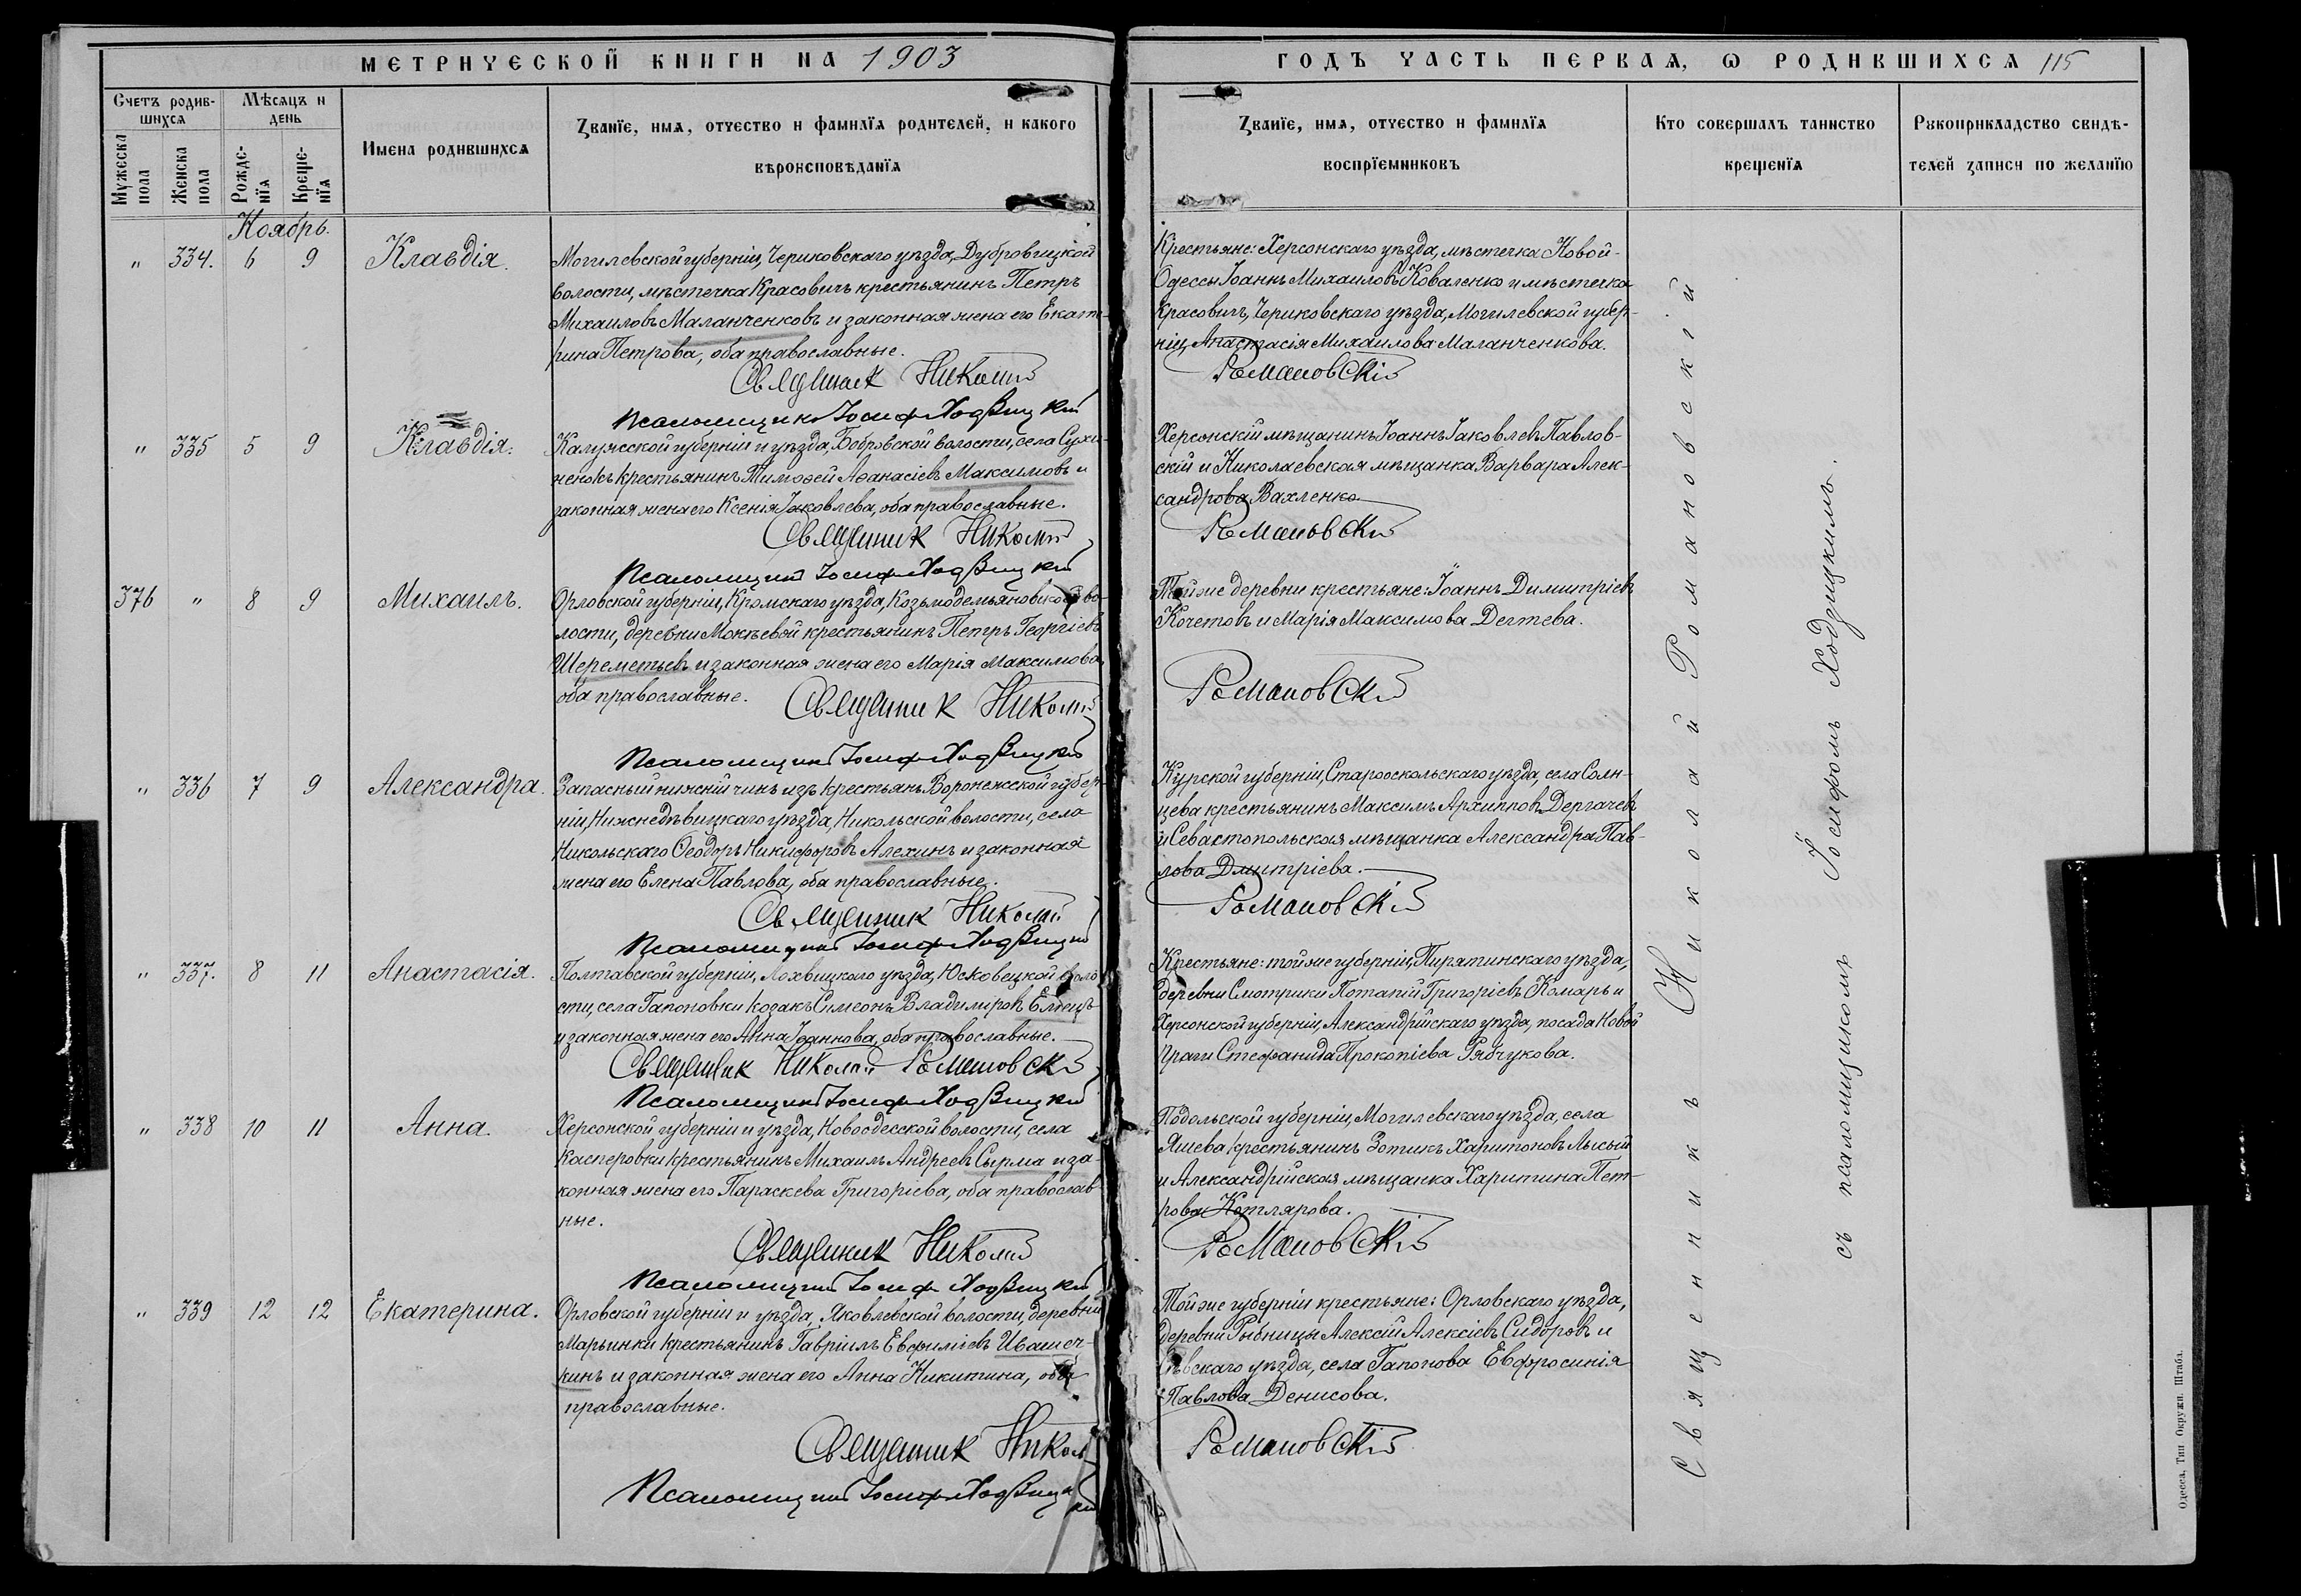 МЕТРИЧЕСКОЙ КНИГИ НА 1903
Счетъ родив-
шихся
Мѣсяцъ и
день
Мужеска
пола
Женска
пола
Рожде-
нїя
Креще-
нїя
Имена родившихся
Званїе, имя, отчество и фамилїя родителей, и какого
вѣроисповѣданїя
Ноябрь.
" 334. 6 9 Клавдія.
Могилевской губерніи, Чериковскаго уѣзда, Дубровицкой
волости, мѣстечка Красовичъ крестьянинъ Петръ
Михаиловъ Маланченковъ и законная жена его Екате-
рина Петрова, оба православные.
Священник Николай
Псаломщикъ Іосифъ Ходзицкій
" 335 5 9 Клавдія.
Калужской губерніи и уѣзда, Бобровской волости, села Сухи-
ненокъ крестьянинъ Тимоѳей Аѳанасіевъ Максимовъ и
законная жена его Ксенія Іаковлева, оба православные.
Священник Николай
Псаломщикъ Іосифъ Ходзицкій
376 " 8 9 Михаилъ.
Орловской губерніи, Кромскаго уѣзда, Козьмодемьяновской во-
лости, деревни Мокѣевой крестьянинъ Петръ Георгіевъ
Шереметьевъ и законная жена его Марія Максимова,
оба православные.
Священник Николай
Псаломщикъ Іосифъ Ходзицкій
" 336 7 9 Александра.
Запасный нижній чинъ изъ крестьянъ Воронежской губер-
ніи, Нижнедѣвицкаго уѣзда, Никольской волости, села
Никольскаго Ѳеодоръ Никифоровъ Алехинъ и законная
жена его Елена Павлова, оба православные.
Священник Николай
Псаломщикъ Іосифъ Ходзицкій
" 337. 8 11 Анастасія.
Полтавской губерніи, Лохвицкаго уѣзда, Юсковецкой воло-
сти, села Гапоновки козакъ Симеонъ Владимировъ Елнецъ
и законная жена его Анна Іоаннова, оба православные.
Священник Николай Романовскій
Псаломщикъ Іосифъ Ходзицкій
" 338 10 11 Анна.
Херсонской губерніи и уѣзда, Новоодесской волости, села
Касперовки крестьянинъ Михаилъ Андреевъ Сырма и за-
конная жена его Параскева Григоріева, оба православ-
ные.
Священник Николай
Псаломщикъ Іосифъ Ходзицкій
" 339 12 12 Екатерина.
Орловской губерніи и уѣзда, Яковлевской волости, деревни
Марьинки крестьянинъ Гавріилъ Евфиміевъ Ивашеч-
кинъ и законная жена его Анна Никитина, оба
православные.
Священник Николай
Псаломщикъ Іосифъ Ходзицкій
ГОДЪ ЧАСТЬ ПЕРВАЯ, Ѡ РОДИВШИХСЯ 115
Званїе, имя, отчество и фамилїя
воспрїемниковъ
Кто совершалъ таинство
крещенїя
Рукоприкладство свидѣ-
телей записи по желанїю
Крестьяне: Херсонскаго уѣзда, мѣстечка Новой-
Одессы Іоаннъ Михаиловъ Коваленко и мѣстечка
Красовичъ, Чериковскаго уѣзда, Могилевской губер-
ніи, Анастасія Михаилова Маланченкова.
Романовскій
Херсонскій мѣщанинъ Іоаннъ Іаковлевъ Павлов-
скій и Николаевская мѣщанка Варвара Алек-
сандрова Вахленко
Романовскій
Тойже деревни крестьяне: Іоаннъ Димитріевъ
Кочетовъ и Марія Максимова Дегтева.
Романовскій
Курской губерніи, Старооскольскаго уѣзда, села Солн-
цева крестьянинъ Максимъ Архиповъ Дергачевъ
и Севастопольская мѣщанка Александра Пав-
лова Дмитріева.
Романовскій
Крестьяне: тойже губерніи, Пирятинскаго уѣзда,
деревни Смотрики Потапій Григоріевъ Комаръ и
Херсонской губерніи, Александрійскаго уѣзда, посада Новой
Праги Стефанида Прокопіева Рябчукова.
Подольской губерніи, Могилевскаго уѣзда, села
Яшева крестьянинъ Зотикъ Харитоновъ Лысый
и Александрійская мѣщанка Харитина Пет-
рова Котлярова.
Романовскій
Тойже губерніи крестьяне: Орловскаго уѣзда,
деревни Рыбницы Алексій Алексіевъ Сидоровъ и
Сѣвскаго уѣзда, села Гапонова Евфросинія
Павлова Денисова.
Романовскій
Священникъ Николай Романовскій
съ псаломщикомъ Іосифомъ Ходзицкимъ.
Одесса, Тип Окружн. Штаба.